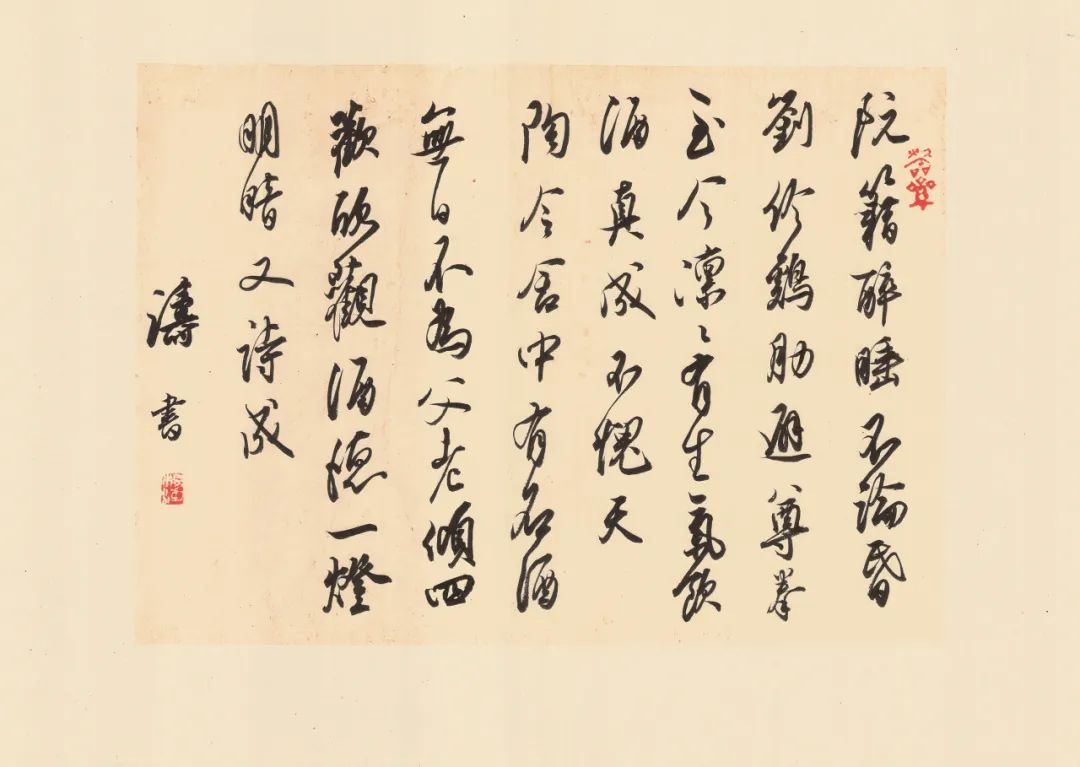 阮籍醉睡不論昏
劉伶鷄肋避尊拳
至今凛〻有生氣飲
酒真成不愧天
陶令舍中有名酒
無日不為父老傾四
歡欣觀酒德一燈
明暗又詩成
濤書